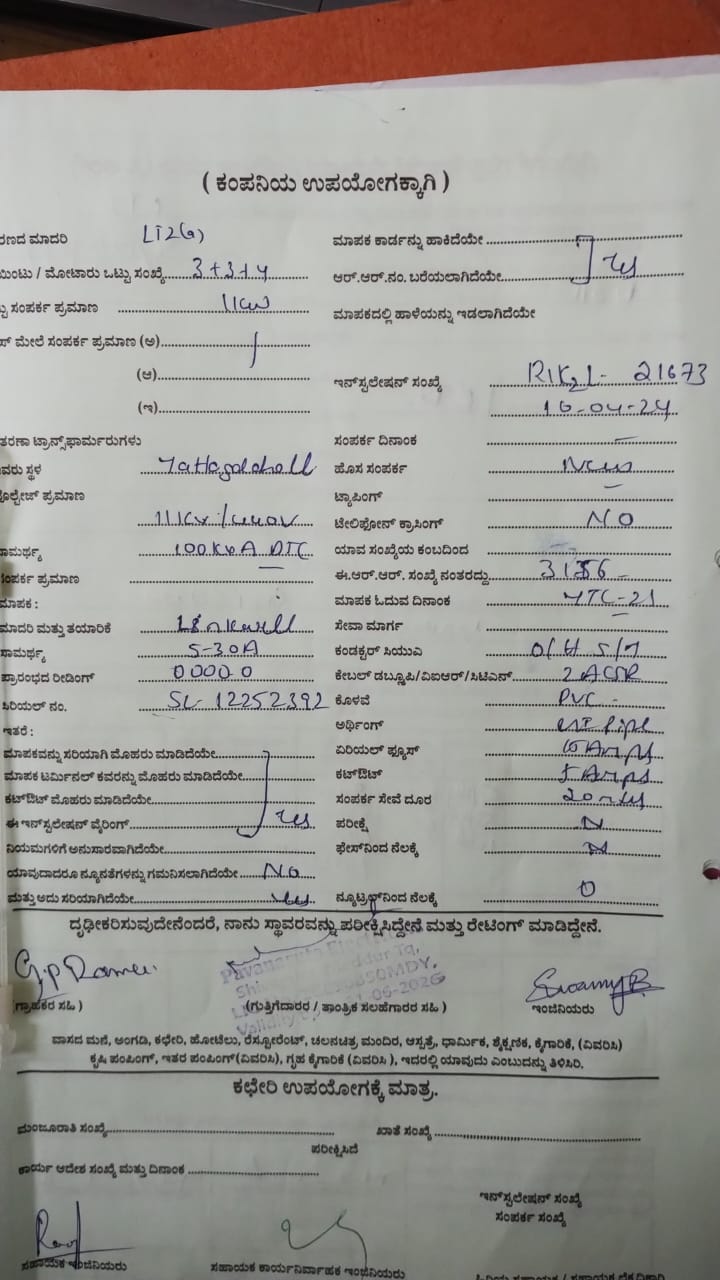 ( ಕಂಪನಿಯ ಉಪಯೋಗಕ್ಕಾಗಿ )
ರಣದ ಮಾದರಿ LT2(a)
ಯಿಂಟು / ಮೋಟಾರು ಒಟ್ಟು ಸಂಖ್ಯೆ 3+3+4
ಟ್ಟು ಸಂಪರ್ಕ ಪ್ರಮಾಣ 11kw
ಸ್ ಮೇಲೆ ಸಂಪರ್ಕ ಪ್ರಮಾಣ (ಅ)
(ಆ)
(ಇ)
ತರಣಾ ಟ್ರಾನ್ಸ್‌ಫಾರ್ಮರುಗಳು
ವರು ಸ್ಥಳ
ವೋಲ್ಟೇಜ್ ಪ್ರಮಾಣ
11kv/440v
ಸಾಮರ್ಥ್ಯ 100KVA DTC
ಸಂಪರ್ಕ ಪ್ರಮಾಣ
ಮಾಪಕ :
ಮಾದರಿ ಮತ್ತು ತಯಾರಿಕೆ
ಸಾಮರ್ಥ್ಯ 5-30A
ಪ್ರಾರಂಭದ ರೀಡಿಂಗ್ 00000
ಸಿರಿಯಲ್ ನಂ. SL-12252392
ಇತರೆ :
ಮಾಪಕವನ್ನು ಸರಿಯಾಗಿ ಮೊಹರು ಮಾಡಿದೆಯೇ
ಮಾಪಕ ಟರ್ಮಿನಲ್ ಕವರನ್ನು ಮೊಹರು ಮಾಡಿದೆಯೇ
ಕಟ್‌ಔಟ್ ಮೊಹರು ಮಾಡಿದೆಯೇ
ಈ ಇನ್‌ಸ್ಟಲೇಷನ್ ವೈರಿಂಗ್ yes
ನಿಯಮಗಳಿಗೆ ಅನುಸಾರವಾಗಿದೆಯೇ
ಯಾವುದಾದರೂ ನ್ಯೂನತೆಗಳನ್ನು ಗಮನಿಸಲಾಗಿದೆಯೇ No
ಮತ್ತು ಅದು ಸರಿಯಾಗಿದೆಯೇ yes
ಮಾಪಕ ಕಾರ್ಡನ್ನು ಹಾಕಿದೆಯೇ
ಆರ್.ಆರ್.ನಂ. ಬರೆಯಲಾಗಿದೆಯೇ yes
ಮಾಪಕದಲ್ಲಿ ಹಾಳೆಯನ್ನು ಇಡಲಾಗಿದೆಯೇ
ಇನ್‌ಸ್ಟಲೇಷನ್ ಸಂಖ್ಯೆ 21673
16-04-24
ಸಂಪರ್ಕ ದಿನಾಂಕ
ಹೊಸ ಸಂಪರ್ಕ New
ಟ್ಯಾಪಿಂಗ್
ಟೇಲಿಫೋನ್ ಕ್ರಾಸಿಂಗ್ NO
ಯಾವ ಸಂಖ್ಯೆಯ ಕಂಬದಿಂದ
ಈ.ಆರ್.ಆರ್. ಸಂಖ್ಯೆ ನಂತರದ್ದು
ಮಾಪಕ ಓದುವ ದಿನಾಂಕ
ಸೇವಾ ಮಾರ್ಗ
ಕಂಡಕ್ಟರ್ ಸಿಯುವಿ O/H S/M
ಕೇಬಲ್ ಡಬ್ಲ್ಯೂಪಿ/ವಿಐಆರ್/ಸಿಟಿಎಸ್ 2 ACSR
ಕೊಳವೆ PVC
ಅರ್ಥಿಂಗ್ GI Pipe
ಏರಿಯಲ್ ಫ್ಯೂಸ್ Amps
ಕಟ್‌ಔಟ್ Amps
ಸಂಪರ್ಕ ಸೇವೆ ದೂರ 20 mts
ಪರೀಕ್ಷೆ N
ಫೇಸ್‌ನಿಂದ ನೆಲಕ್ಕೆ N
ನ್ಯೂಟ್ರಲ್‌ನಿಂದ ನೆಲಕ್ಕೆ 0
ದೃಢೀಕರಿಸುವುದೇನೆಂದರೆ, ನಾನು ಸ್ಥಾವರವನ್ನು ಪರೀಕ್ಷಿಸಿದ್ದೇನೆ ಮತ್ತು ರೇಟಿಂಗ್ ಮಾಡಿದ್ದೇನೆ.
ಗ್ರಾಹಕರ ಸಹಿ )
(ಗುತ್ತಿಗೆದಾರರ / ತಾಂತ್ರಿಕ ಸಲಹೆಗಾರರ ಸಹಿ )
ಇಂಜಿನಿಯರು
ವಾಸದ ಮನೆ, ಅಂಗಡಿ, ಕಛೇರಿ, ಹೋಟೆಲು, ರೆಸ್ಟೋರೆಂಟ್, ಚಲನಚಿತ್ರ ಮಂದಿರ, ಆಸ್ಪತ್ರೆ, ಧಾರ್ಮಿಕ, ಶೈಕ್ಷಣಿಕ, ಕೈಗಾರಿಕೆ, (ವಿವರಿಸಿ)
ಕೃಷಿ ಪಂಪಿಂಗ್, ಇತರ ಪಂಪಿಂಗ್(ವಿವರಿಸಿ), ಗೃಹ ಕೈಗಾರಿಕೆ (ವಿವರಿಸಿ ), ಇದರಲ್ಲಿ ಯಾವುದು ಎಂಬುದನ್ನು ತಿಳಿಸಿರಿ.
ಕಛೇರಿ ಉಪಯೋಗಕ್ಕೆ ಮಾತ್ರ.
ಮಂಜೂರಾತಿ ಸಂಖ್ಯೆ
ಖಾತೆ ಸಂಖ್ಯೆ
ಪರೀಕ್ಷಿಸಿದೆ
ಕಾರ್ಯ ಆದೇಶ ಸಂಖ್ಯೆ ಮತ್ತು ದಿನಾಂಕ
ಇನ್‌ಸ್ಟಲೇಷನ್ ಸಂಖ್ಯೆ
ಸಂಪರ್ಕ ಸಂಖ್ಯೆ
ಸಹಾಯಕ ಇಂಜಿನಿಯರು
ಸಹಾಯಕ ಕಾರ್ಯನಿರ್ವಾಹಕ ಇಂಜಿನಿಯರು